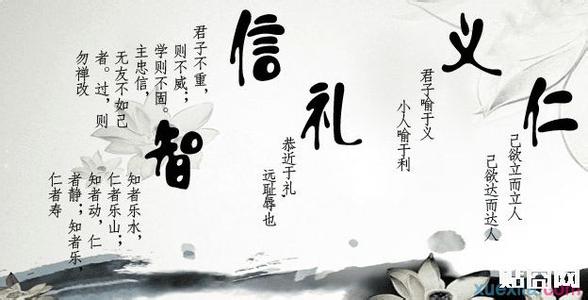 仁
己欲立而立人
己欲达而达人
义
君子喻于义
小人喻于利
礼
恭近于礼,
远耻辱也
信
君子不重,
则不威;
学则不固。
主忠信,
无友不如己
者。过,则
勿禅改
智
知者乐水,
仁者乐山;
知者动,仁
者静;知者乐,
仁者寿
贴囧网